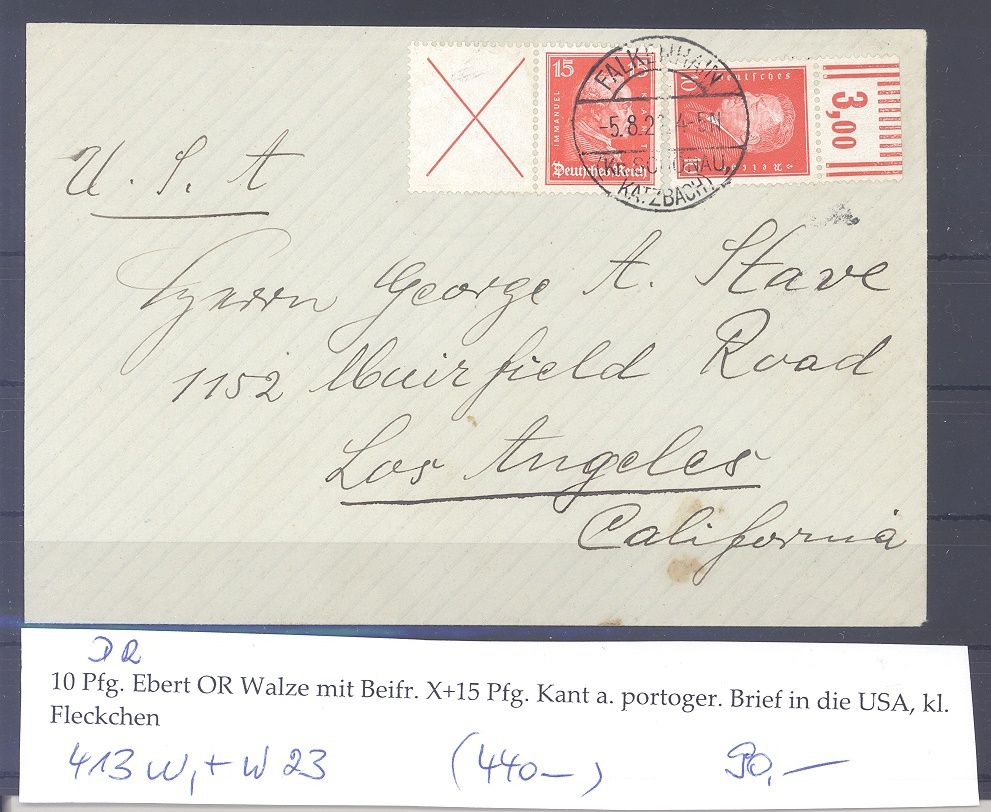 15 15
IMMANUEL
Deutsches Reich
Deutsches
Reich
3,00
FALKENHAIN
-5.8.2 4-5N
KATZBACH)
U. S. A
Herrn George A. Stave
1152 Muirfield Road
Los Angeles
California
DR
10 Pfg. Ebert OR Walze mit Beifr. X+15 Pfg. Kant a. portoger. Brief in die USA, kl.
Fleckchen
413 W, + W 23 (440—) 90,—